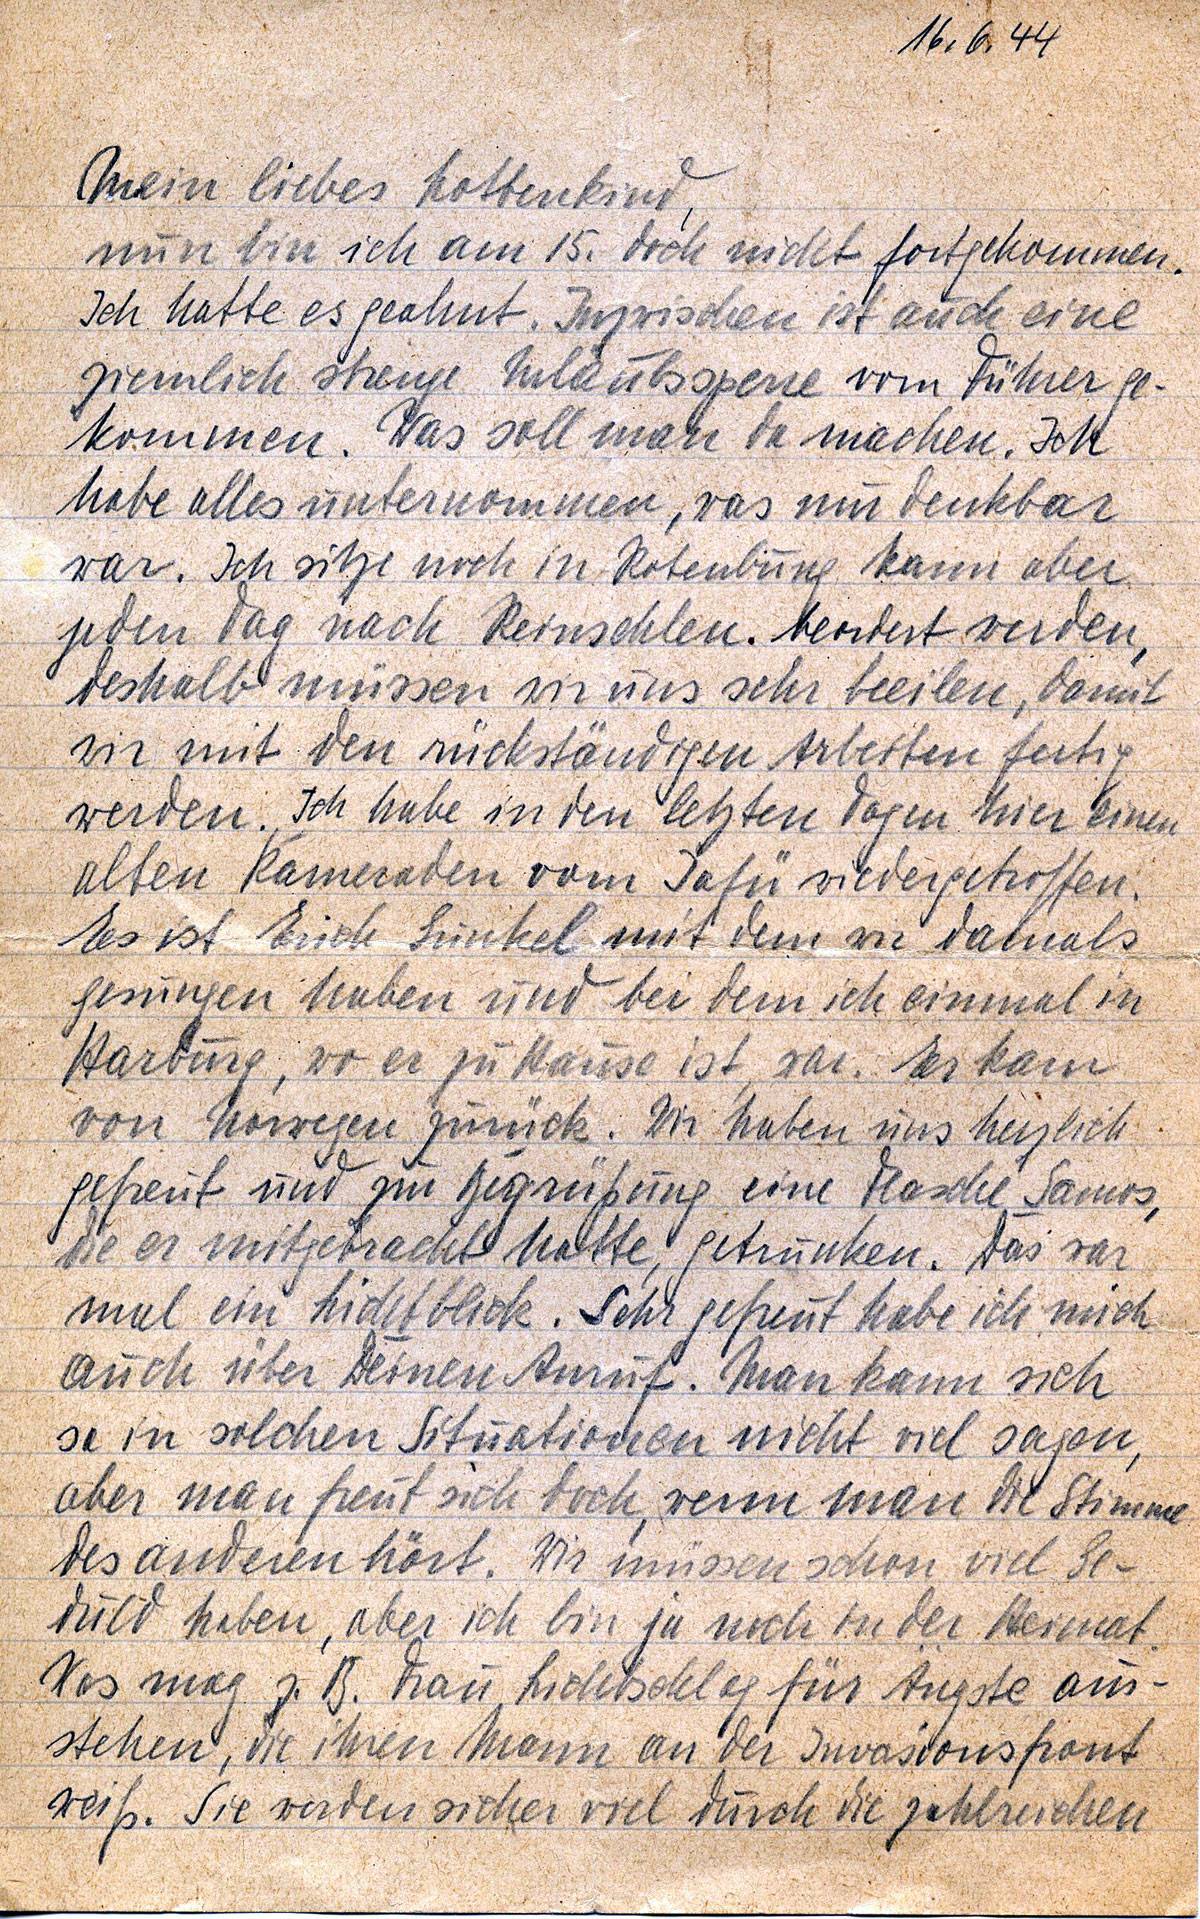 16.6.44
Mein liebes Lottenkind,
nun bin ich am 15. doch nicht fortgekommen.
Ich hatte es geahnt. Inzwischen ist auch eine
ziemlich strenge Urlaubssperre vom Führer ge-
kommen. Was soll man da machen. Ich
habe alles unternommen, was nur denkbar
war. Ich sitze noch in Rotenburg kann aber
jeden Tag nach Reinsehlen. beordert werden,
deshalb müssen wir uns sehr beeilen, damit
wir mit den rückständigen Arbeiten fertig
werden. Ich habe in den letzten Tagen hier einen
alten Kameraden vom Jafü wiedergetroffen.
Es ist Erich mit dem wir damals
gesungen haben und bei dem ich einmal in
Harburg, wo er zu Hause ist, war. Er kam
von Norwegen zurück. Wir haben uns herzlich
gefreut und zur Begrüßung eine Flasche Samos,
die er mitgebracht hatte, getrunken. Das war
mal ein Lichtblick. Sehr gefreut habe ich mich
auch über Deinen Anruf. Man kann sich
so in solchen Situationen nicht viel sagen,
aber man freut sich doch, wenn man die Stimme
des anderen hört. Wir müssen schon viel Ge-
duld haben, aber ich bin ja noch in der Heimat.
Was mag z. B. Frau Lichtschlag für Ängste aus-
stehen, die ihren Mann an der Invasionsfront
weiß. Sie werden sicher viel durch die zahlreichen